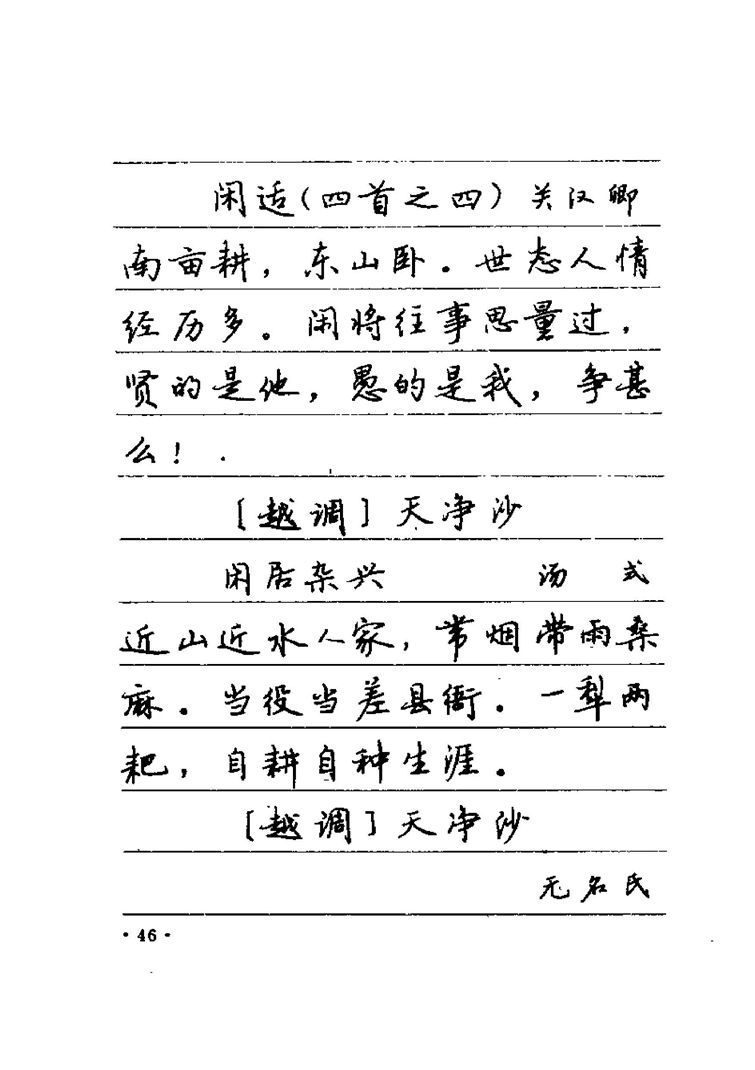 闲适(四首之四) 关汉卿
南亩耕，东山卧。世态人情
经历多。闲将往事思量过，
贤的是他，愚的是我，争甚
么！
[越调]天净沙
闲居杂兴 汤 式
近山近水人家，带烟带雨桑
麻。当役当差县衙。一犁两
耙，自耕自种生涯。
[越调]天净沙
无名氏
·46·